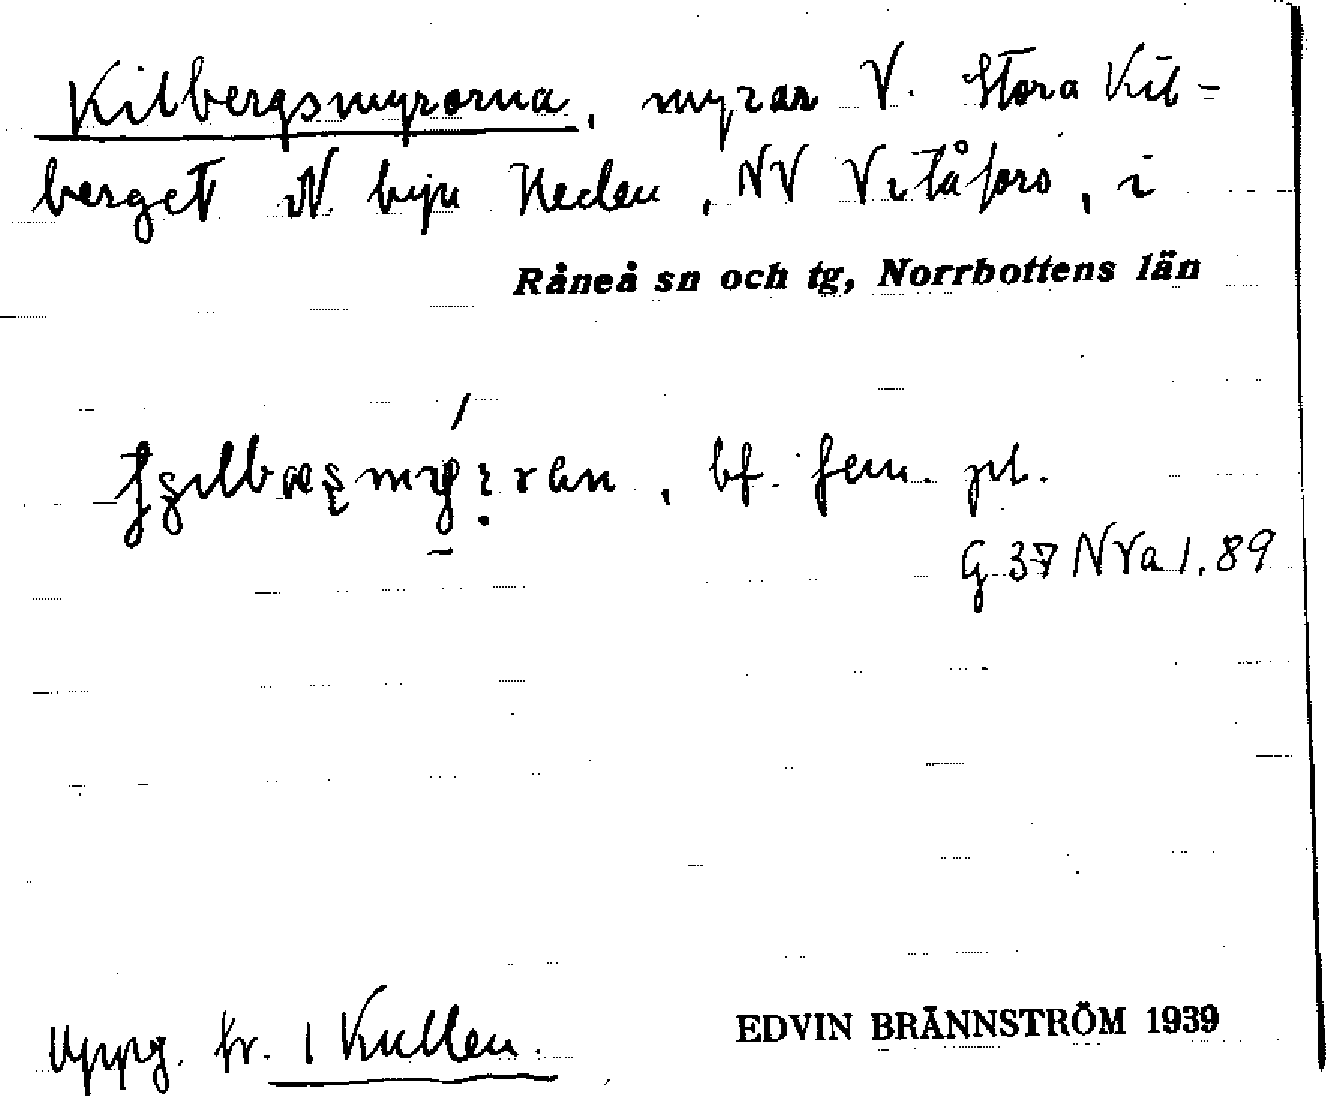 Kilbergsmyrorna, myrar V. Stora Kil-
berget N. byn Heden, NV Vitåfors, i
Råneå sn och tg, Norrbottens län
bf. fem. pl.
G 37 NVa 1.89
Uppg. fr. 1 Kullen.
EDVIN BRÄNNSTRÖM 1939